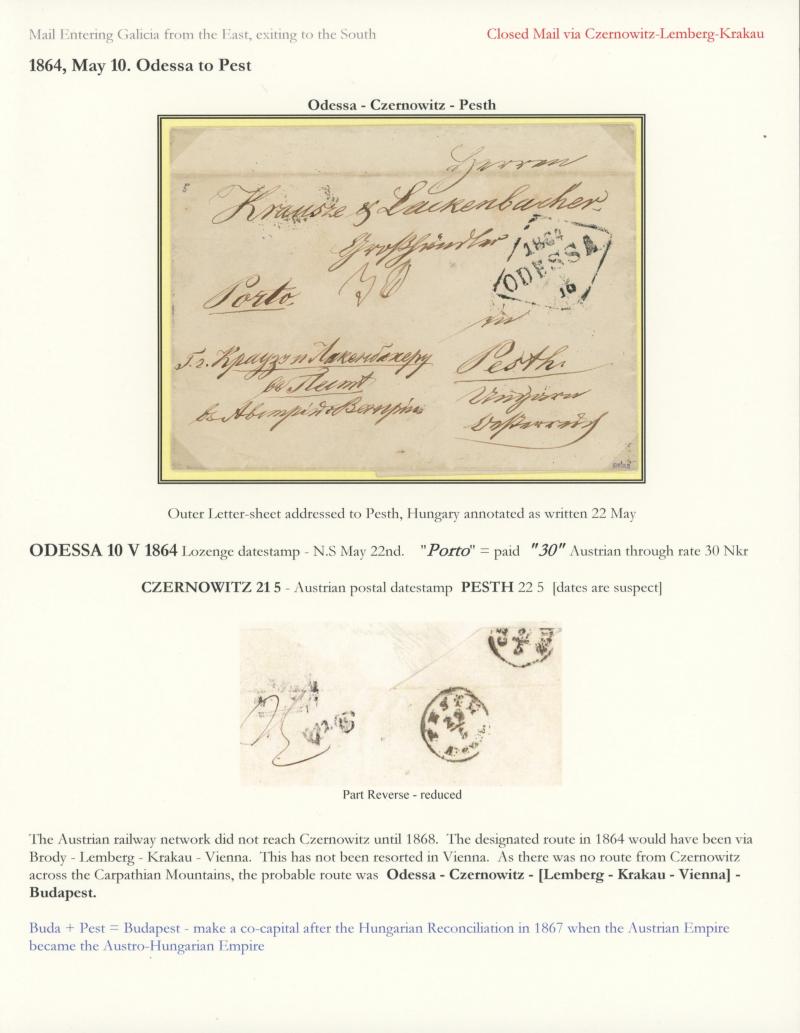 Mail Entering Galicia from the East, exiting to the South
Closed Mail via Czernowitz-Lemberg-Krakau
1864, May 10. Odessa to Pest
Odessa - Czernowitz - Pesth
Herren
Krausze & Lackenbacher
Großhändler
1864
ODESSA
10
Porto
30
in
Г.г. Краузэ и Лакенбахеру
Pesth
въ Пешт
Ungarn
Oesterreich
Outer Letter-sheet addressed to Pesth, Hungary annotated as written 22 May
ODESSA 10 V 1864 Lozenge datestamp - N.S May 22nd. "Porto" = paid "30" Austrian through rate 30 Nkr
CZERNOWITZ 21 5 - Austrian postal datestamp PESTH 22 5 [dates are suspect]
PESTH
Part Reverse - reduced
The Austrian railway network did not reach Czernowitz until 1868. The designated route in 1864 would have been via
Brody - Lemberg - Krakau - Vienna. This has not been resorted in Vienna. As there was no route from Czernowitz
across the Carpathian Mountains, the probable route was Odessa - Czernowitz - [Lemberg - Krakau - Vienna] -
Budapest.
Buda + Pest = Budapest - make a co-capital after the Hungarian Reconciliation in 1867 when the Austrian Empire
became the Austro-Hungarian Empire